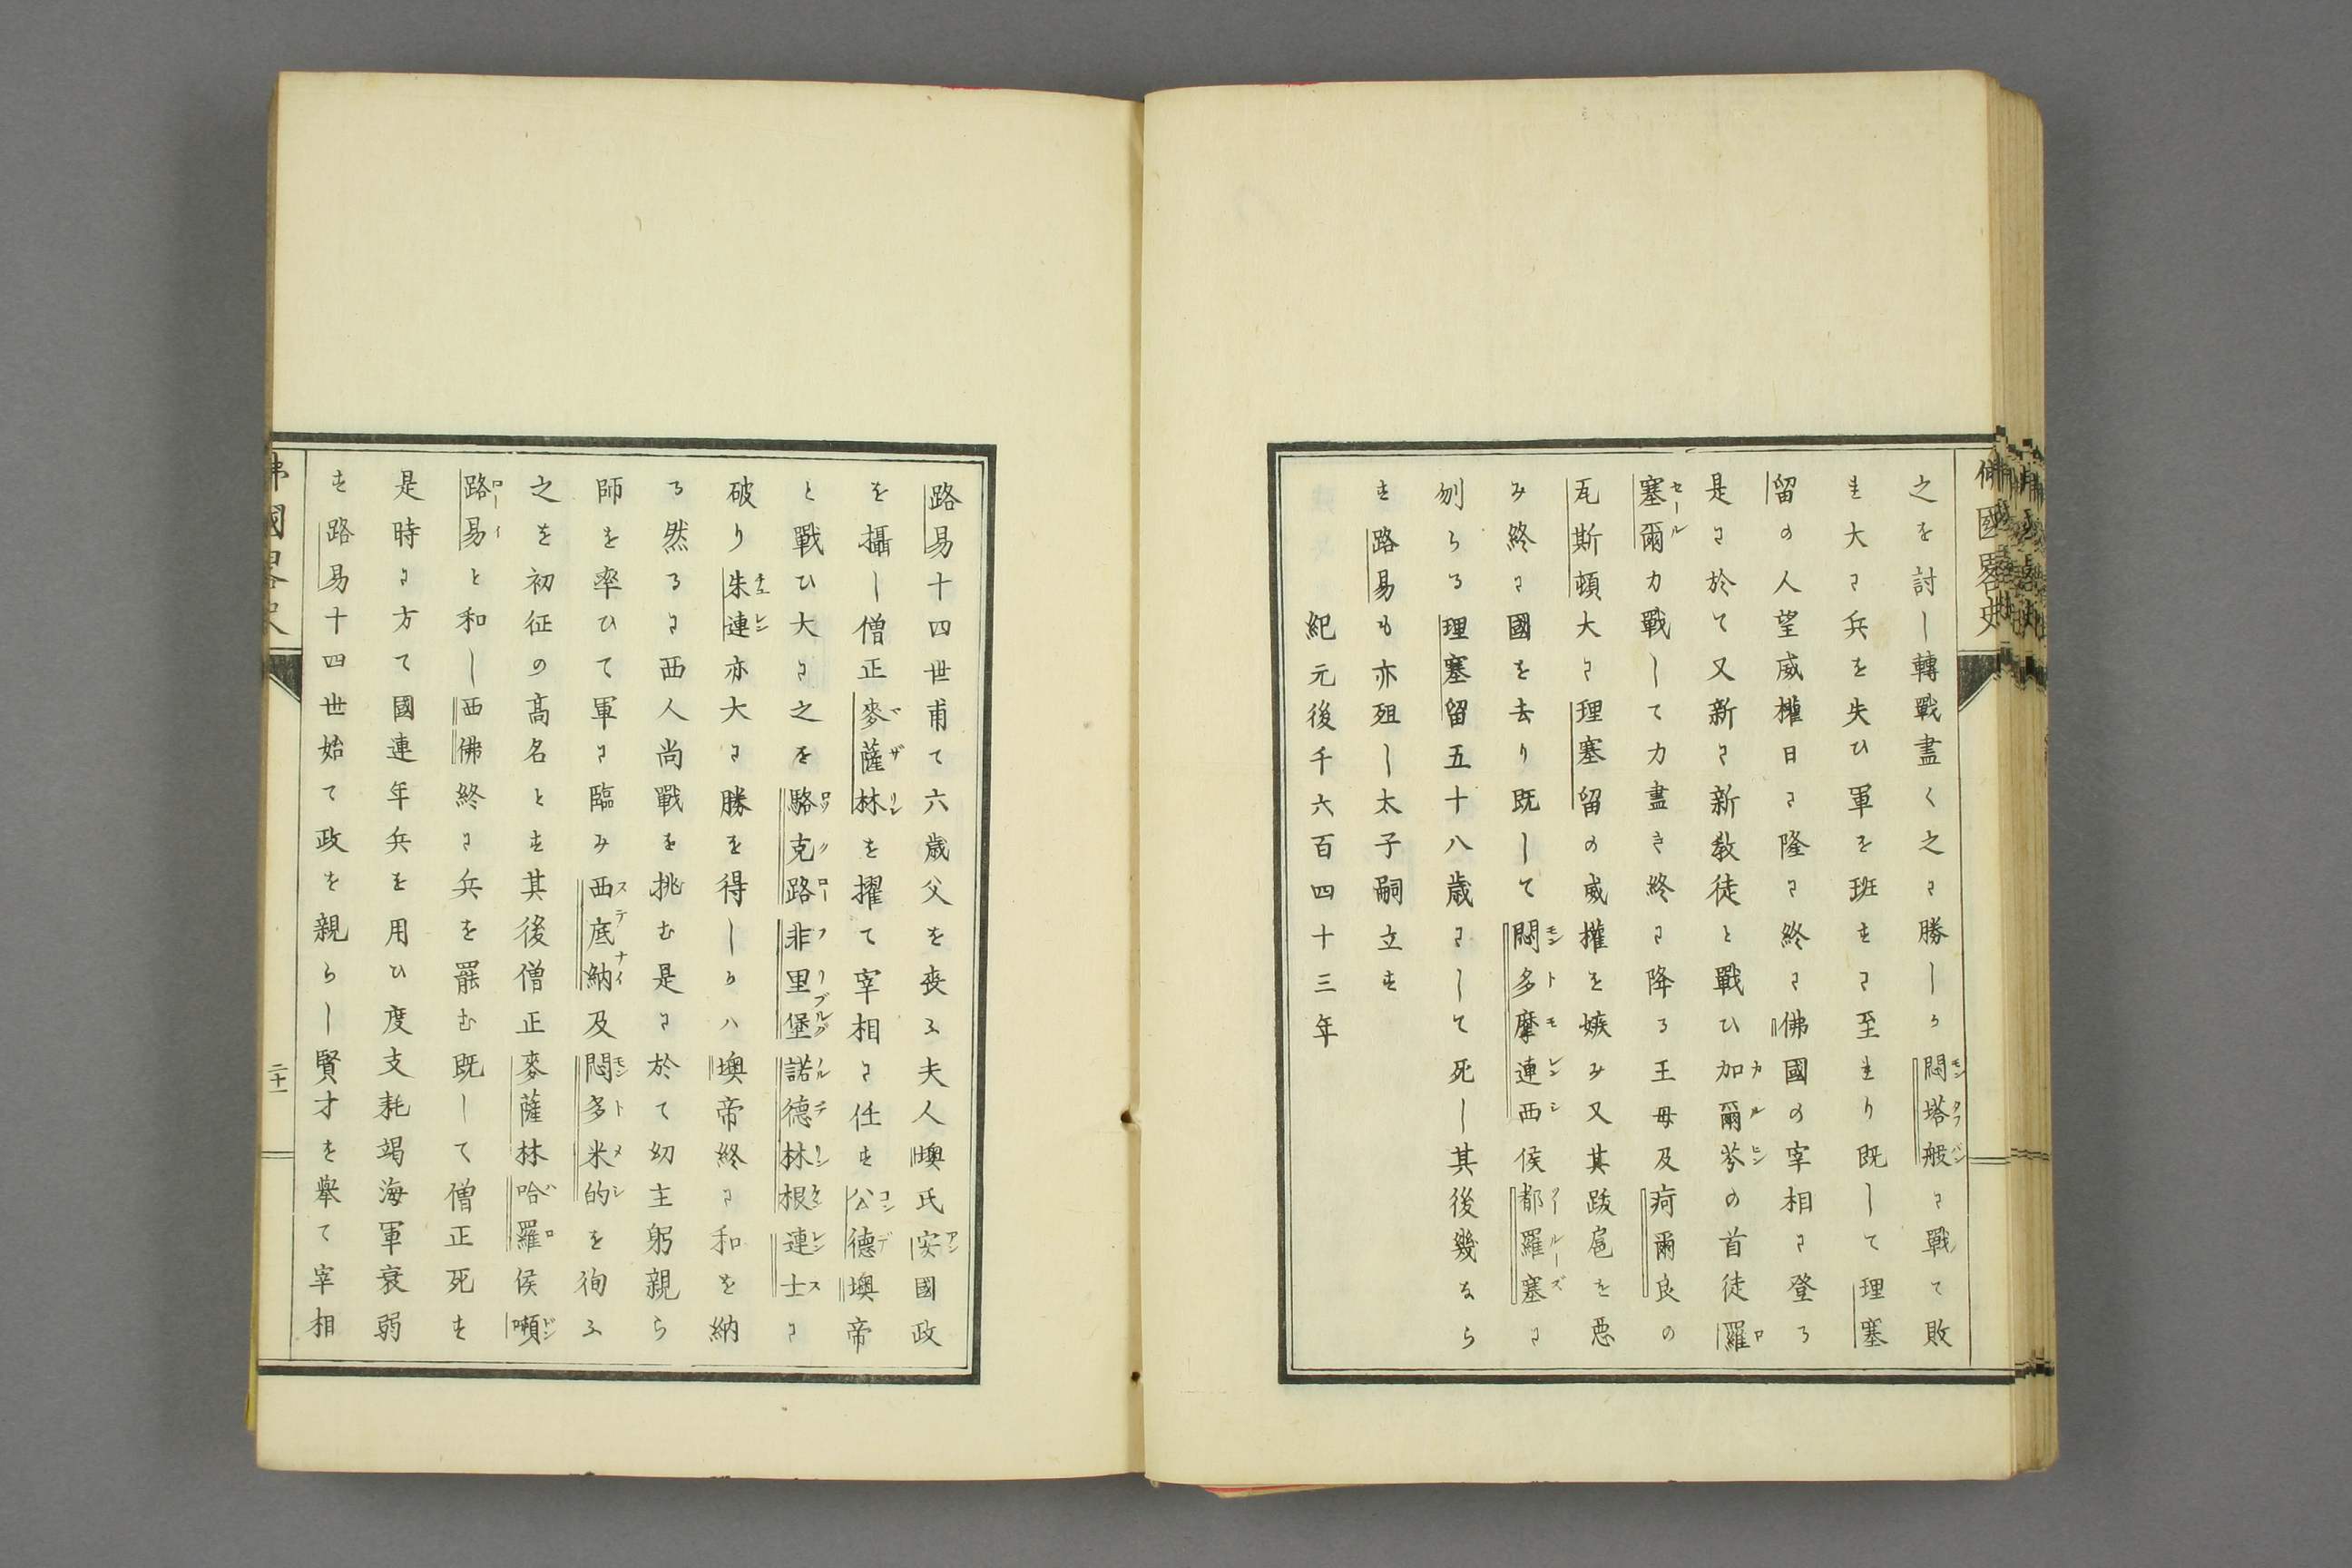 佛國畧史
之を討し轉戰盡く之に勝しか悶塔般に戰て敗
れ大に兵を失ひ軍を班すに至れり既して理塞
留の人望威權日に隆に終に佛國の宰相に登る
是に於て又新に新教徒と戰ひ加爾芩の首徒羅
塞爾力戰して力盡き終に降る王母及疴爾良の
瓦斯頓大に理塞留の威權を嫉み又其跋扈を惡
み終に國を去り既して悶多摩連西侯都羅塞に
刎らる理塞留五十八歳にして死し其後幾なら
す路易も亦殂し太子嗣立す
紀元後千六百四十三年
路易十四世甫て六歳父を喪ふ夫人墺氏安國政
を攝し僧正麥薩林を擢て宰相に任す公德墺帝
と戰ひ大に之を駱克路非里堡諾德林根連士に
破り朱連亦大に勝を得しかハ墺帝終に和を納
る然るに西人尚戰を挑む是に於て幼主躬親ら
師を率ひて軍に臨み西底納及悶多米的を徇ふ
之を初征の高名とす其後僧正麥薩林哈羅侯噸
路易と和し西佛終に兵を罷む既して僧正死す
是時に方て國連年兵を用ひ度支耗竭海軍衰弱
す路易十四世始て政を親らし賢才を舉て宰相
佛國畧史
二十一